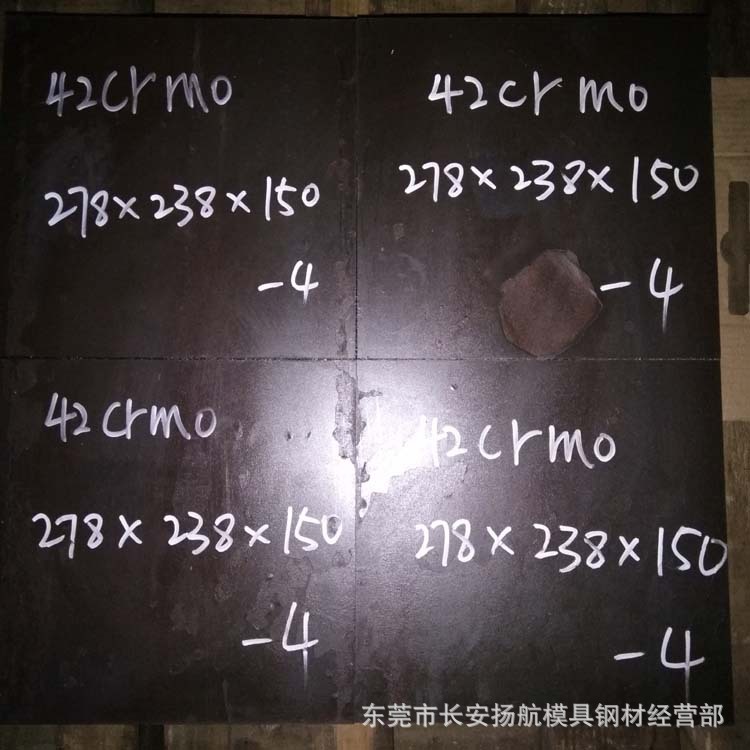 42crmo
278×238×150
-4
42crmo
278×238×150
-4
42crmo
278×238×150
-4
42crmo
278×238×150
-4
东莞市长安扬航模具钢材经营部